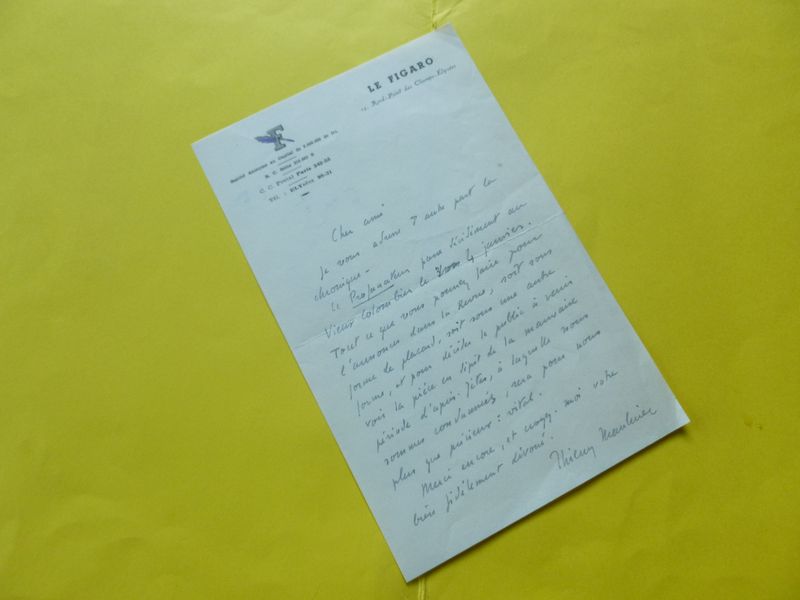 LE FIGARO
14, Rond-Point des Champs-Elysées
F
Société Anonyme au Capital de
R. C. Seine
C. C. Postal Paris
Tél. : ELYsées 98-31
Cher ami
Je vous adresse d'autre part la
chronique.
Le Profanateur passe décidément au
Vieux Colombier le 4 janvier.
Tout ce que vous pourrez faire pour
l'annoncer dans la Revue, soit sous
forme de placard, soit sous une autre
forme, et pour décider le public à venir
voir la pièce en dépit de la mauvaise
période d'après-fêtes, à laquelle nous
sommes condamnés, sera pour nous
plus que précieux : vital.
Merci encore, et croyez-moi votre
bien fidèlement dévoué.
Thierry Maulnier